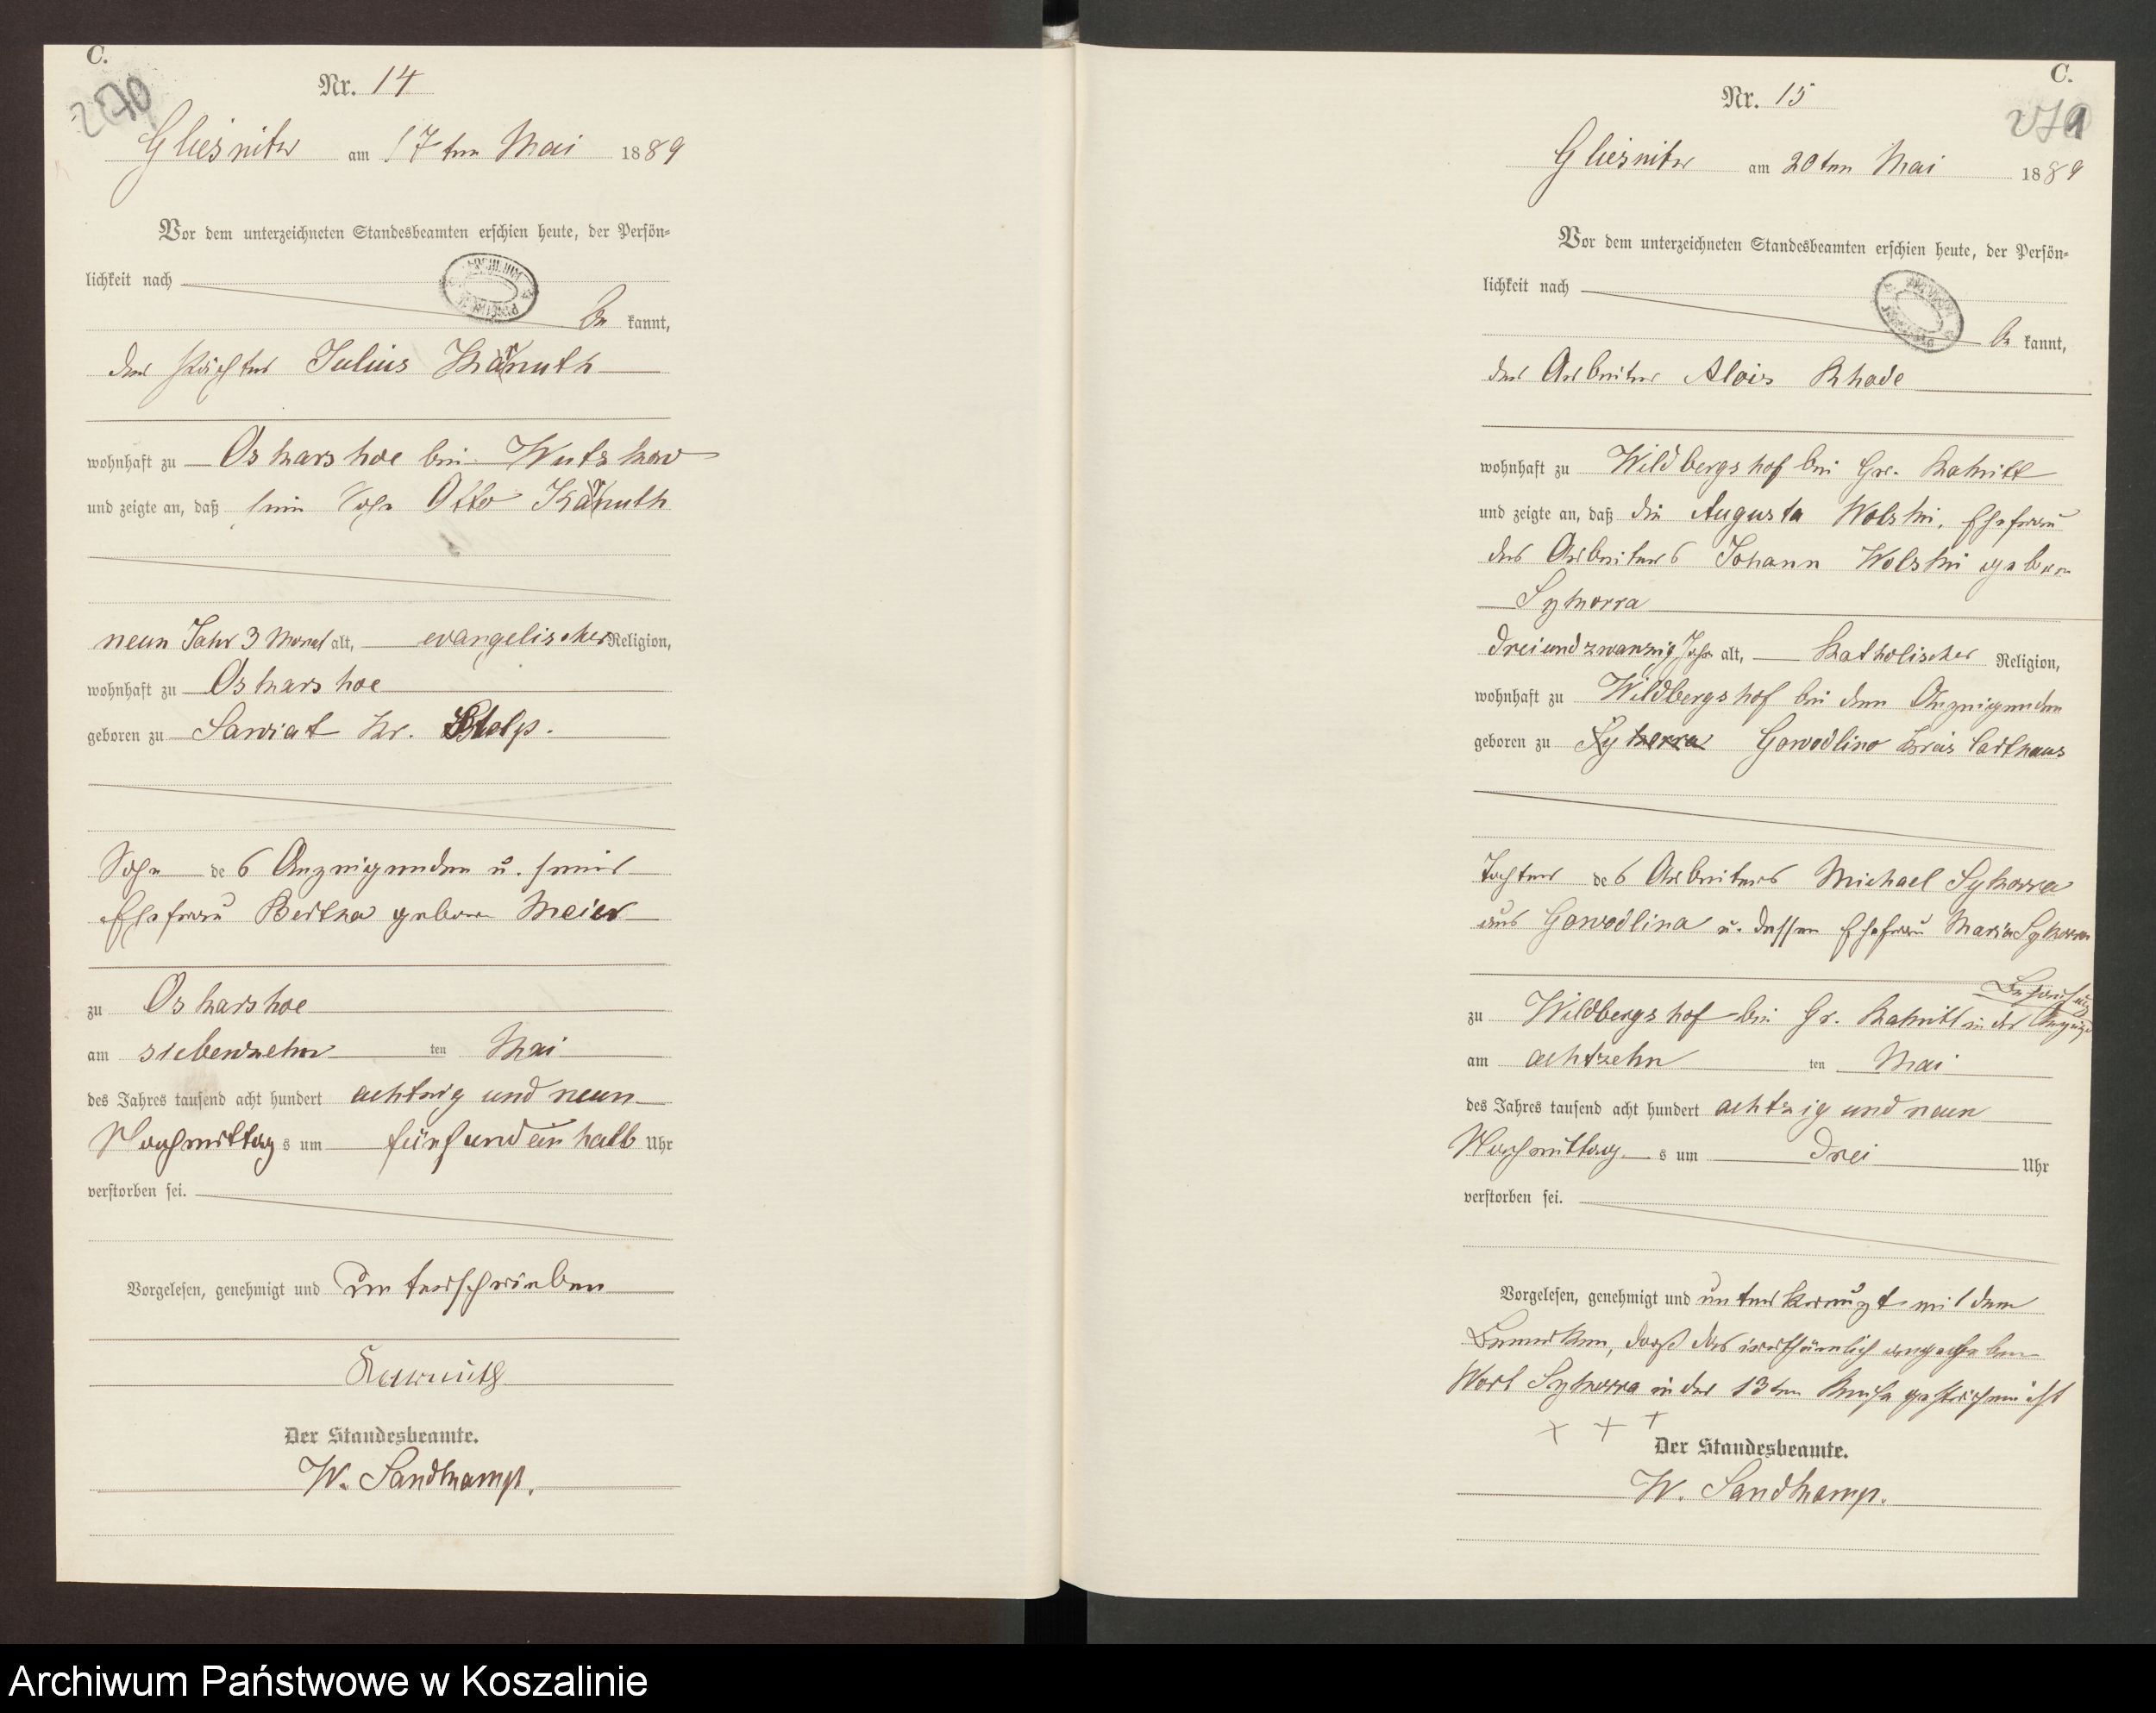 C.
270
Nr. 14
Gliesnitz am 17ten Mai 1889
Vor dem unterzeichneten Standesbeamten erschien heute, der Persön-
lichkeit nach
be kannt,
der Pächter Julius
wohnhaft zu Oskarshoe bei Wutzkow
und zeigte an, daß sein Sohn Otto
neun Jahr 3 Monat alt, evangelischer Religion,
wohnhaft zu Oskarshoe
geboren zu Sawiat Kr. Stolp.
Sohn des Anzeigenden u. seiner
Ehefrau Bertha geboren Meier
zu Oskarshoe
am siebenzehn ten Mai
des Jahres tausend acht hundert achtzig und neun
Nachmittag s um fünf und ein halb Uhr
verstorben sei.
Vorgelesen, genehmigt und unterschrieben
Der Standesbeamte.
W. Sandkamp.
C.
271
Nr. 15
Gliesnitz am 20ten Mai 1889
Vor dem unterzeichneten Standesbeamten erschien heute, der Persön-
lichkeit nach
be kannt,
der Arbeiter Alois Rhode
wohnhaft zu Wildbergshof bei Gr. Rakitt
und zeigte an, daß die Augusta Wolski, Ehefrau
des Arbeiters Johann Wolski geboren
Sykorra
dreiundzwanzig Jahr alt, Katholischer Religion,
wohnhaft zu Wildbergshof bei dem Anzeigenden
geboren zu Sykorra Gowodlino Kreis Carthaus
Tochter des Arbeiters Michael Sykorra
aus Gowodlina u. dessen Ehefrau Maria Sykorra
Behausung
zu Wildbergshof bei Gr. Rakitt in der
am achtzehn ten Mai
des Jahres tausend acht hundert achtzig und neun
Nachmittag s um drei Uhr
verstorben sei.
Vorgelesen, genehmigt und unterkreuzt mit dem
Bemerken, daß das irrthümlich angegebene
Wort Sykorra in der 13ten Reihe gestrichen ist
+ + +
Der Standesbeamte.
W. Sandkamp.
Archiwum Państwowe w Koszalinie